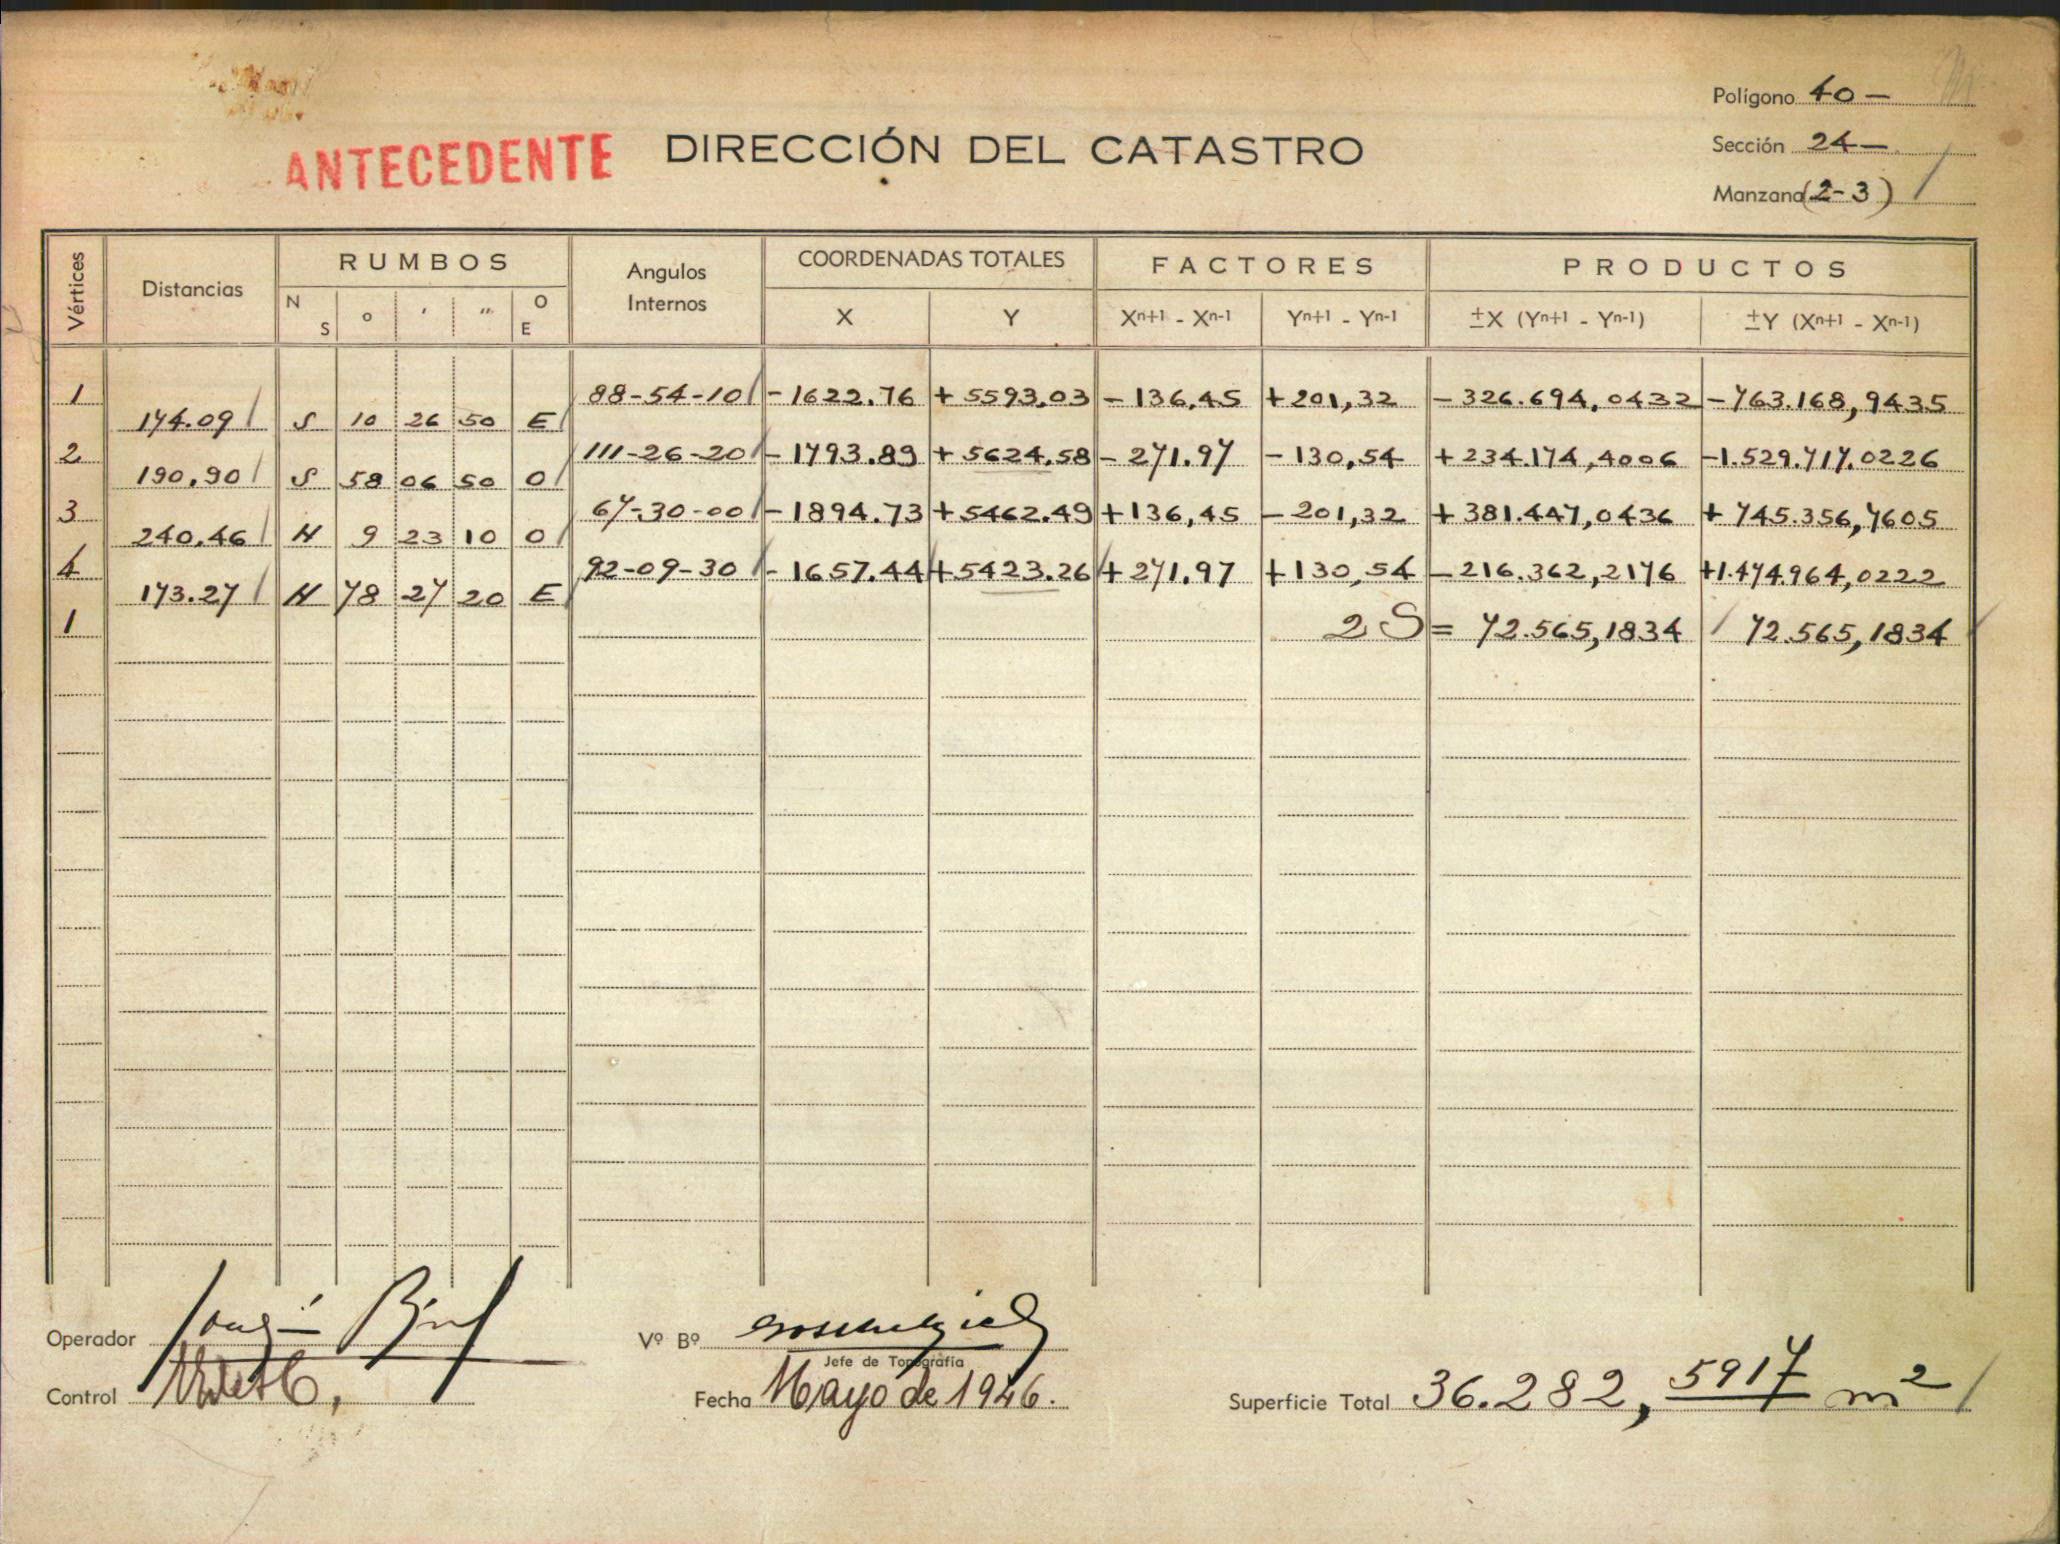 Polígono 40 —
ANTECEDENTE DIRECCIÓN DEL CATASTRO
Sección 24 —
Manzana (2-3)
Vértices Distancias RUMBOS Angulos Internos COORDENADAS TOTALES FACTORES PRODUCTOS
N S o ′ ″ O E X Y Xn+1 - Xn-1 Yn+1 - Yn-1 ±X (Yn+1 - Yn-1) ±Y (Xn+1 - Xn-1)
1 88-54-10 -1622.76 +5593.03 -136,45 +201,32 -326.694,0432 -763.168,9435
174.09 S 10 26 50 E
2 111-26-20 -1793.89 +5624.58 -271.97 -130,54 +234.174,4006 -1.529.717.0226
190,90 S 58 06 50 O
3 67-30-00 -1894.73 +5462.49 +136,45 -201,32 +381.447,0436 +745.356,7605
240,46 N 9 23 10 O
4 92-09-30 -1657.44 +5423.26 +271,97 +130,54 -216.362,2176 +1.474.964,0222
173.27 N 78 27 20 E
1 2S = 72.565,1834 72.565,1834
Operador
Vº Bº
Jefe de Topografía
Control
Fecha Mayo de 1946.
Superficie Total 36.282,5917 m2